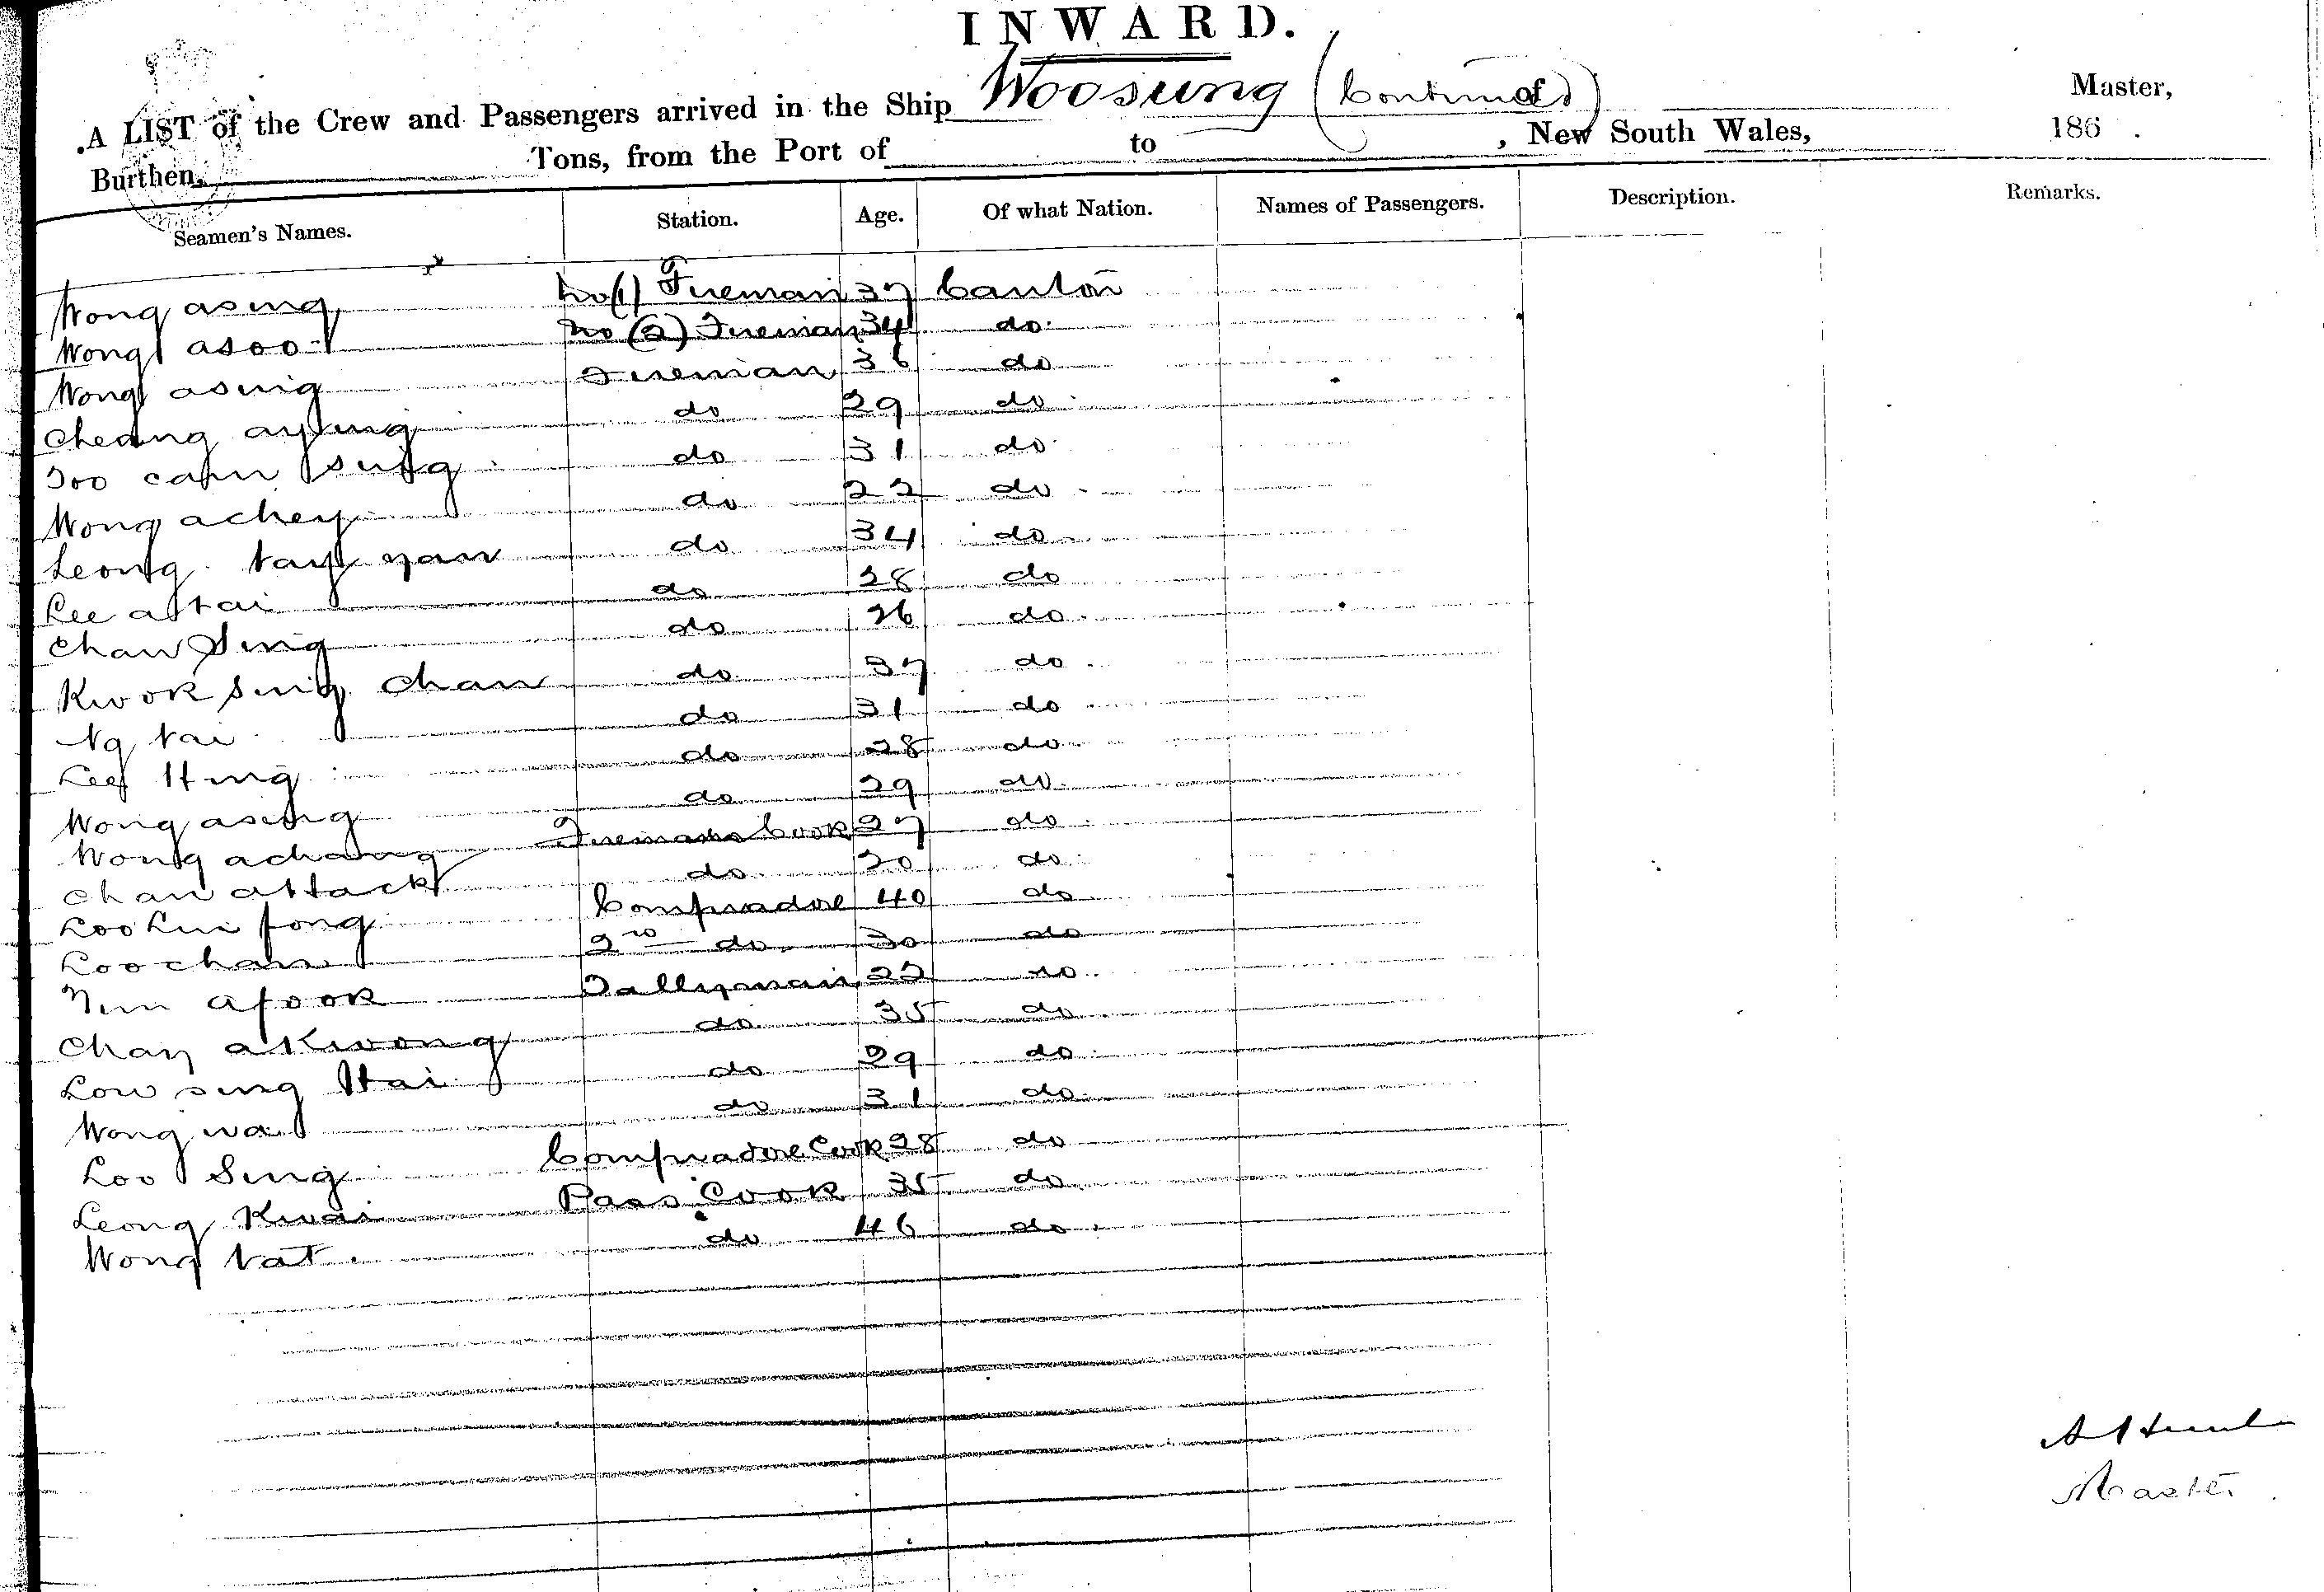 INWARD.
A LIST of the Crew and Passengers arrived in the Ship Woosung (Continued) of Master,
Burthen, Tons, from the Port of to , New South Wales, 186 .
Seamen's Names. Station. Age. Of what Nation. Names of Passengers. Description. Remarks.
Wong asing No (1) Fireman 37 Canton
Wong asoo No (2) Fireman 34 do
Wong asing Fireman 36 do
Cheang ayung do 29 do
Too cahn sung do 31 do
Wong achey do 22 do
Leong tay yan do 34 do
Lee attai do 28 do
Chan Sing do 26 do
Kwok Sing Chan do 37 do
Ng tai do 31 do
Lee Hing do 28 do
Wong asing do 29 do
Wong achang Firemans Cook 27 do
Chan attack do 20 do
Loo Lui fong Compradore 40 do
Loo chan 2nd do 30 do
afook Tallyman 22 do
Chan akwong do 35 do
Low sing Hai do 29 do
Wong wai do 31 do
Loo Sing Compradore Cook 28 do
Leong Kwai Pass Cook 35 do
Wong tat do 46 do
Master